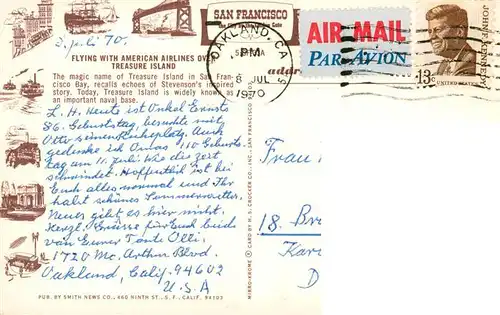 8. Juli 70.
FLYING WITH AMERICAN AIRLINES OVER
TREASURE ISLAND
The magic name of Treasure Island in San Fran-
cisco Bay, recalls echoes of Stevenson's inspired
story. Today, Treasure Island is widely known as
an important naval base.
L. H. Heute ist Onkel Ernsts
86. Geburtstag, besuchte mit
Otto seinen Ruheplatz. Auch
gedenke ich Omas 110 Geburts
tag am 11. Juli. Wie die Zeit
schwindet. Hoffentlich ist bei
Euch alles normal und Ihr
habt schönes Sommerwetter.
Neues gibt es hier nicht.
Herzl. Grüsse für Euch beide
von Eurer Tante Olli.
1720 Mc. Arthur Blvd.
Oakland, Calif. 94602
U.S.A
PUB. BY SMITH NEWS CO., 460 NINTH ST., S.F., CALIF. 94103
MIRRO-KROME ® CARD BY H.S. CROCKER CO., INC., SAN FRANCISCO
SAN FRANCISCO
OAKLAND, CA
PM
8 JUL
1970
AIR MAIL
PAR AVION
JOHN F. KENNEDY
13c
UNITED STATES
addr
Frau
18. Br
Kar
D